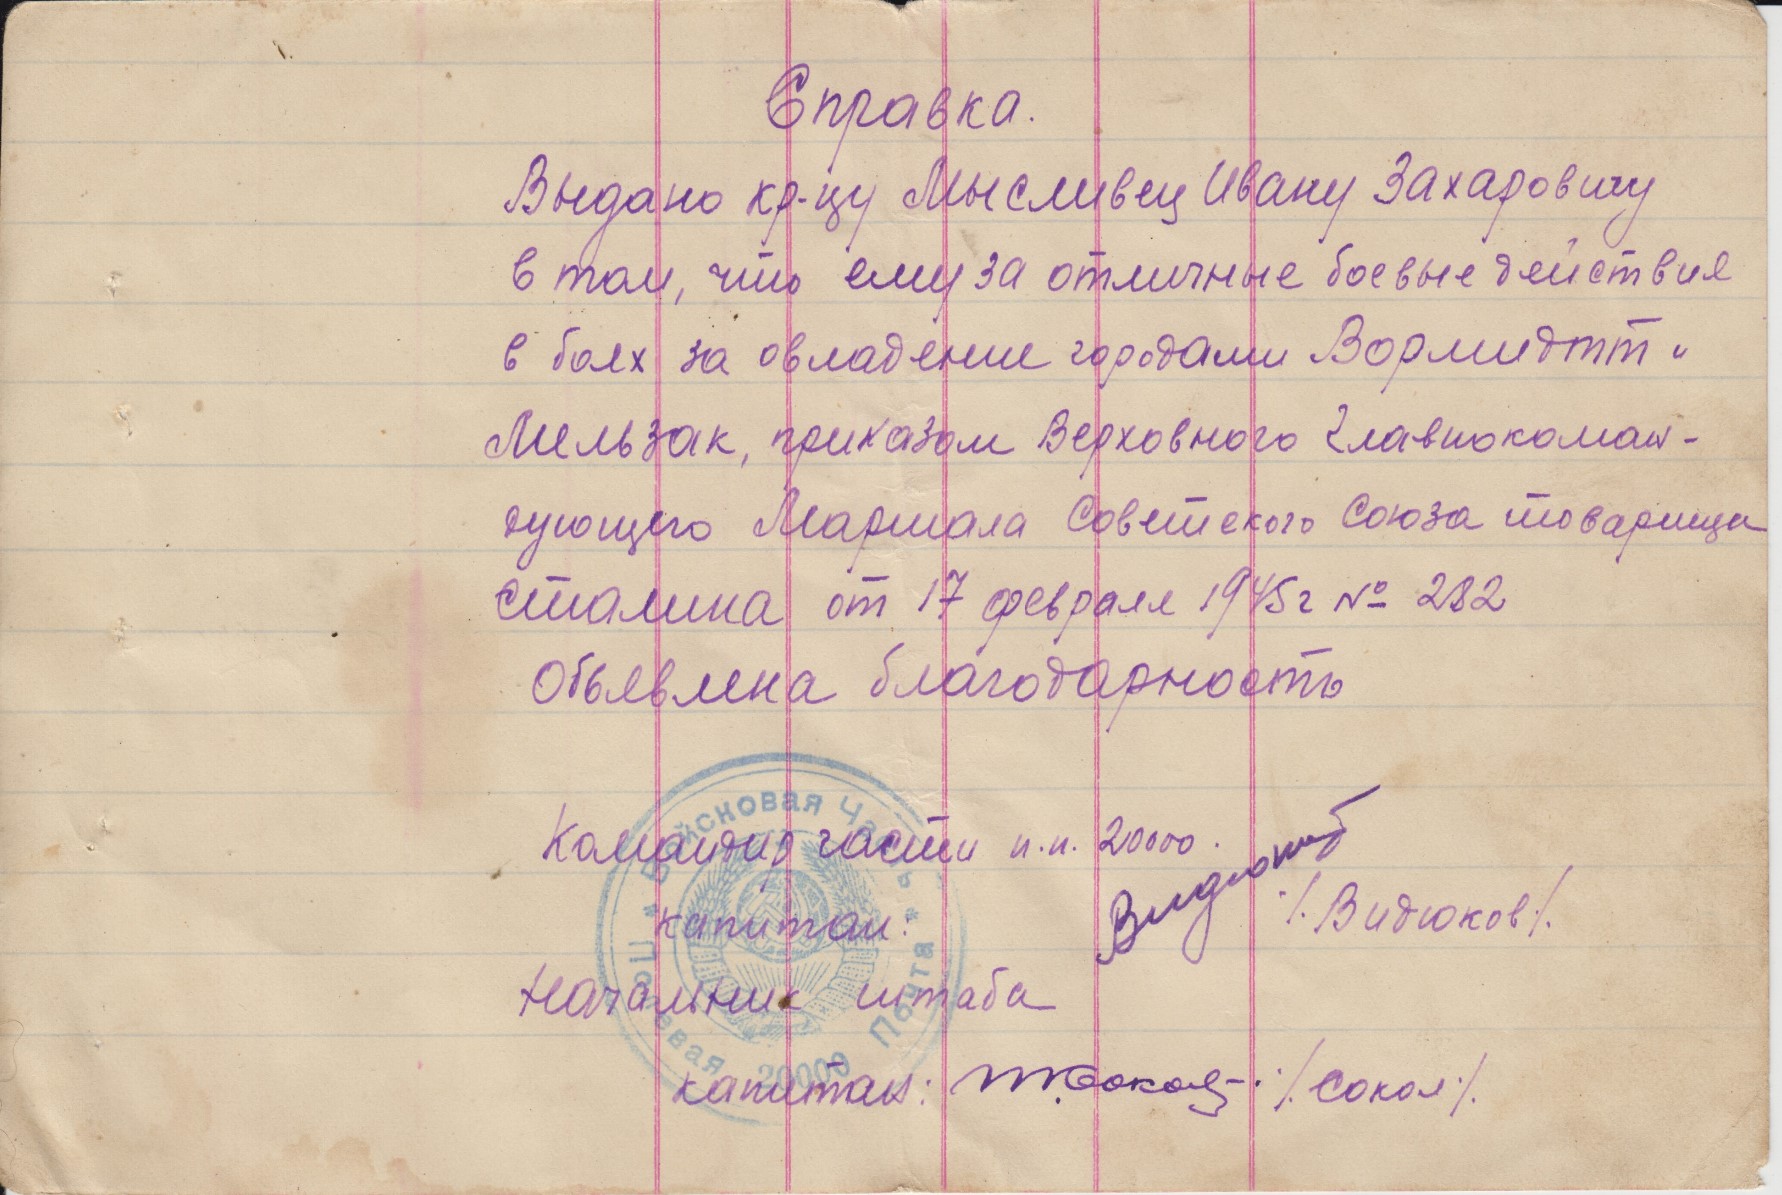 Справка.
Выдано кр-цу Мысливец Ивану Захаровичу
в том, что ему за отличные боевые действия
в боях за овладение городами Вормидтт и
Мельзак, приказом Верховного Главнокоман-
дующего Маршала Советского Союза товарища
Сталина от 17 февраля 1945г № 282
Объявлена благодарность
Командир части п.п. 20000.
капитан: Видюков /Видюков/.
Начальник штаба
капитан: Сокол /Сокол/.
Войсковая Часть * Полевая Почта * 20000